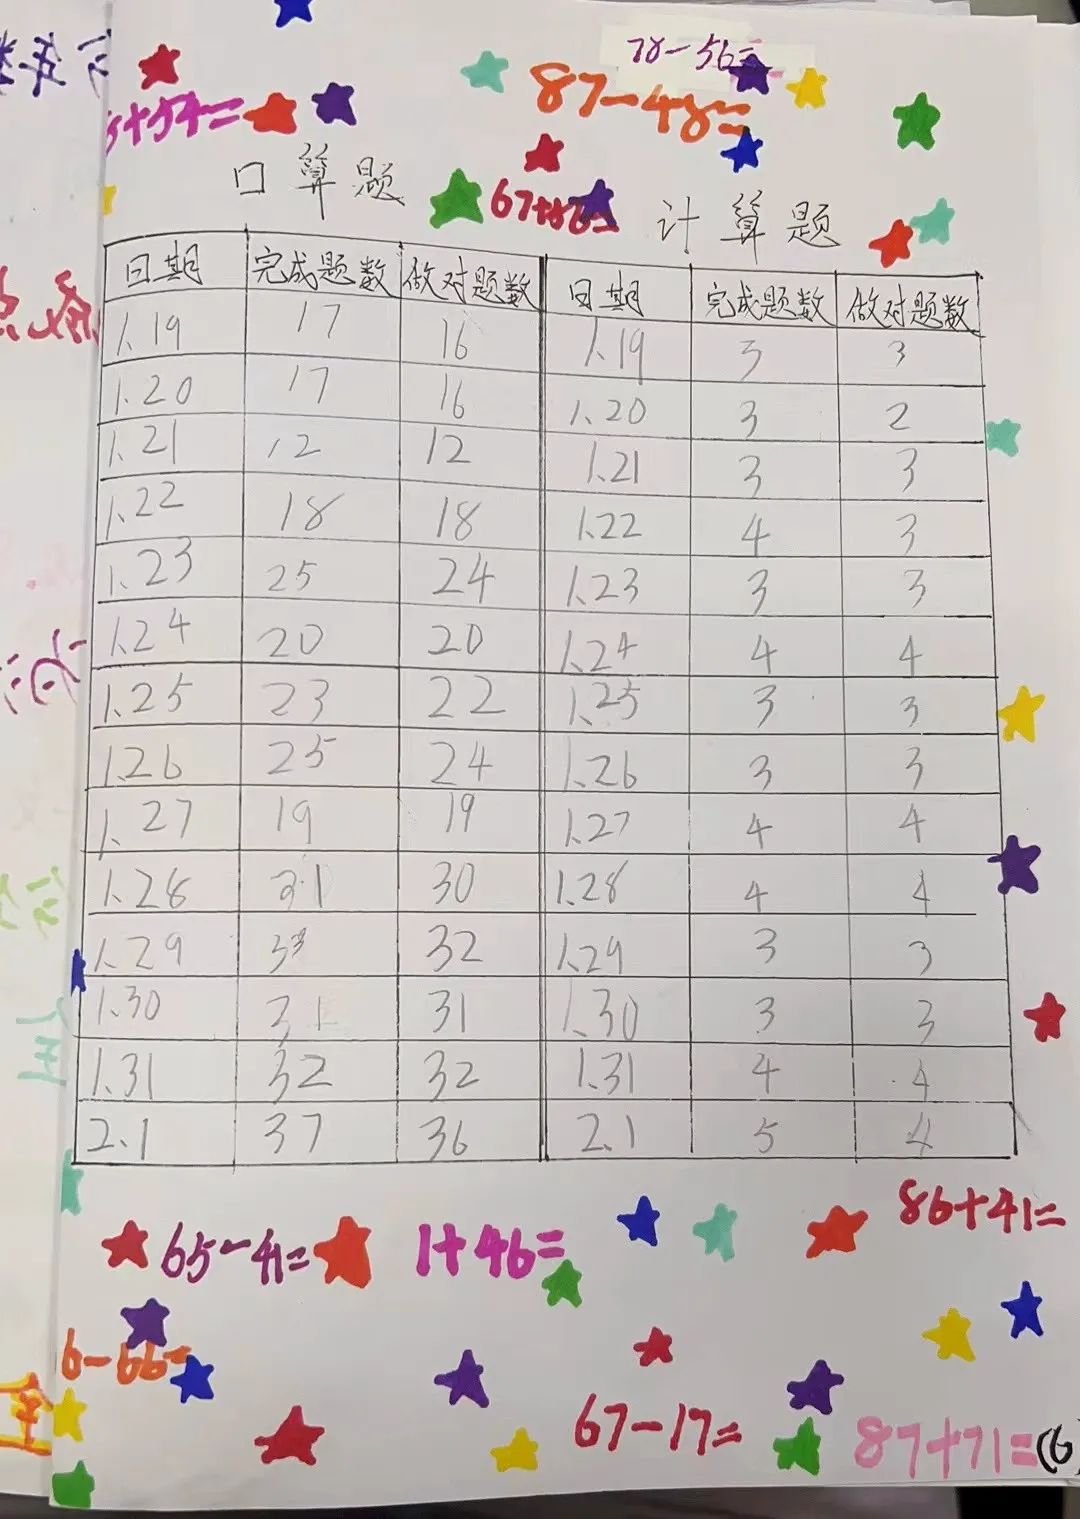 78-56=
87-48=
5+54=
67+56=
口算题 计算题
日期 完成题数 做对题数 日期 完成题数 做对题数
1.19 17 16 1.19 3 3
1.20 17 16 1.20 3 2
1.21 12 12 1.21 3 3
1.22 18 18 1.22 4 3
1.23 25 24 1.23 3 3
1.24 20 20 1.24 4 4
1.25 23 22 1.25 3 3
1.26 25 24 1.26 3 3
1.27 19 19 1.27 4 4
1.28 31 30 1.28 4 4
1.29 33 32 1.29 3 3
1.30 31 31 1.30 3 3
1.31 32 32 1.31 4 4
2.1 37 36 2.1 5 4
86+41=
65-41=
1+46=
6-66=
67-17=
87+71=(6